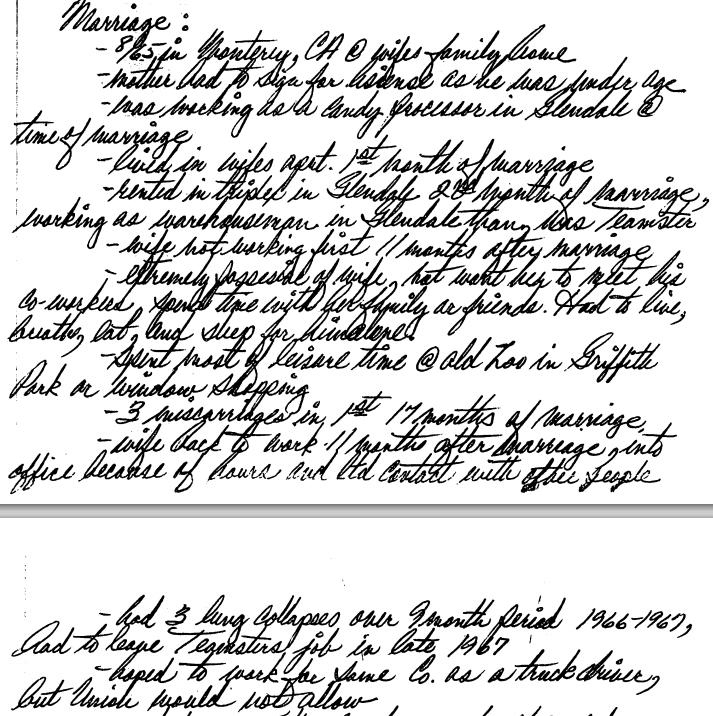 Marriage:
- 8/65 in Monterey, CA @ wifes family home
- mother had to sign for liscense as he was under age
- was working as a candy processor in Glendale @
time of marriage
- lived in wifes aprt. 1st month of marriage
- rented in triplex in Glendale 2nd month of marriage,
working as warehouseman in Glendale than, was Teamster
- wife not working first 11 months after marriage
- extremely possesive of wife, not want her to meet his
co-workers, spend time with her family or friends. Had to live,
breath, eat, and sleep for him alone.
- spent most of leisure time @ old Zoo in Griffith
Park or window shopping
- 3 miscarriages in 1st 17 months of marriage,
- wife back to work 11 months after marriage, into
office because of hours and ltd contact with other people
- had 3 lung collapses over 9 month period 1966-1967,
had to leave Teamsters job in late 1967
- hoped to work for same Co. as a truck driver,
but Union would not allow